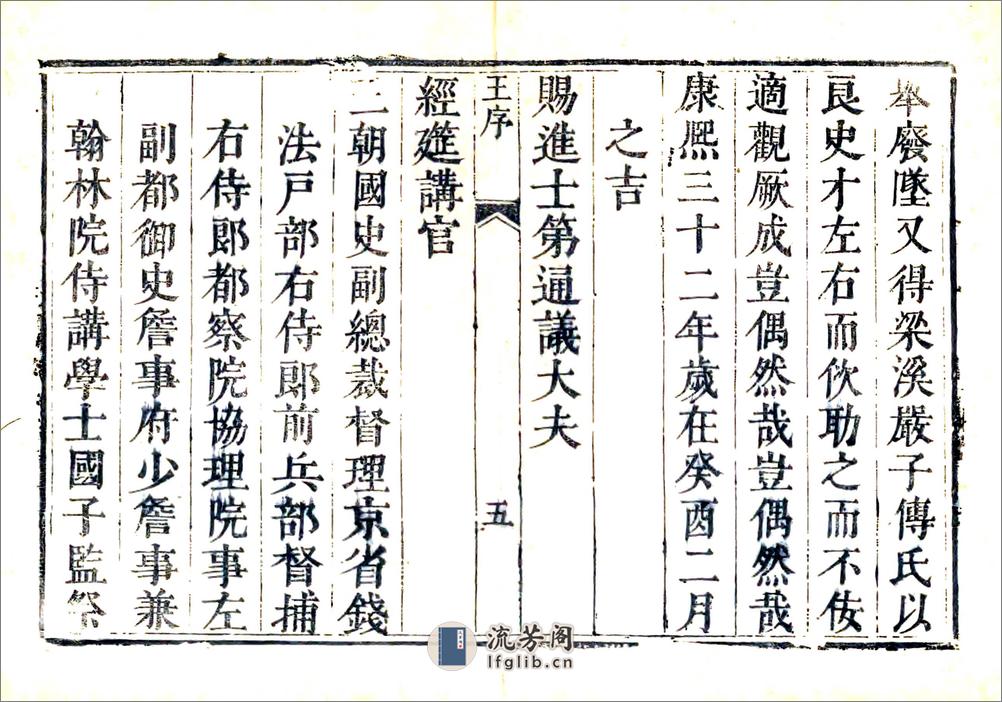 舉廢墜又得梁溪嚴子傳氏以
良史才左右而佽助之而不佞
適觀厥成豈偶然哉豈偶然哉
康熙三十二年歲在癸酉二月
之吉
賜進士第通議大夫
王序 五
經筵講官
三朝國史副總裁督理京省錢
法戶部右侍郎前兵部督捕
右侍郎都察院協理院事左
副都御史詹事府少詹事兼
翰林院侍講學士國子監祭
流芳阁
lfglib.cn